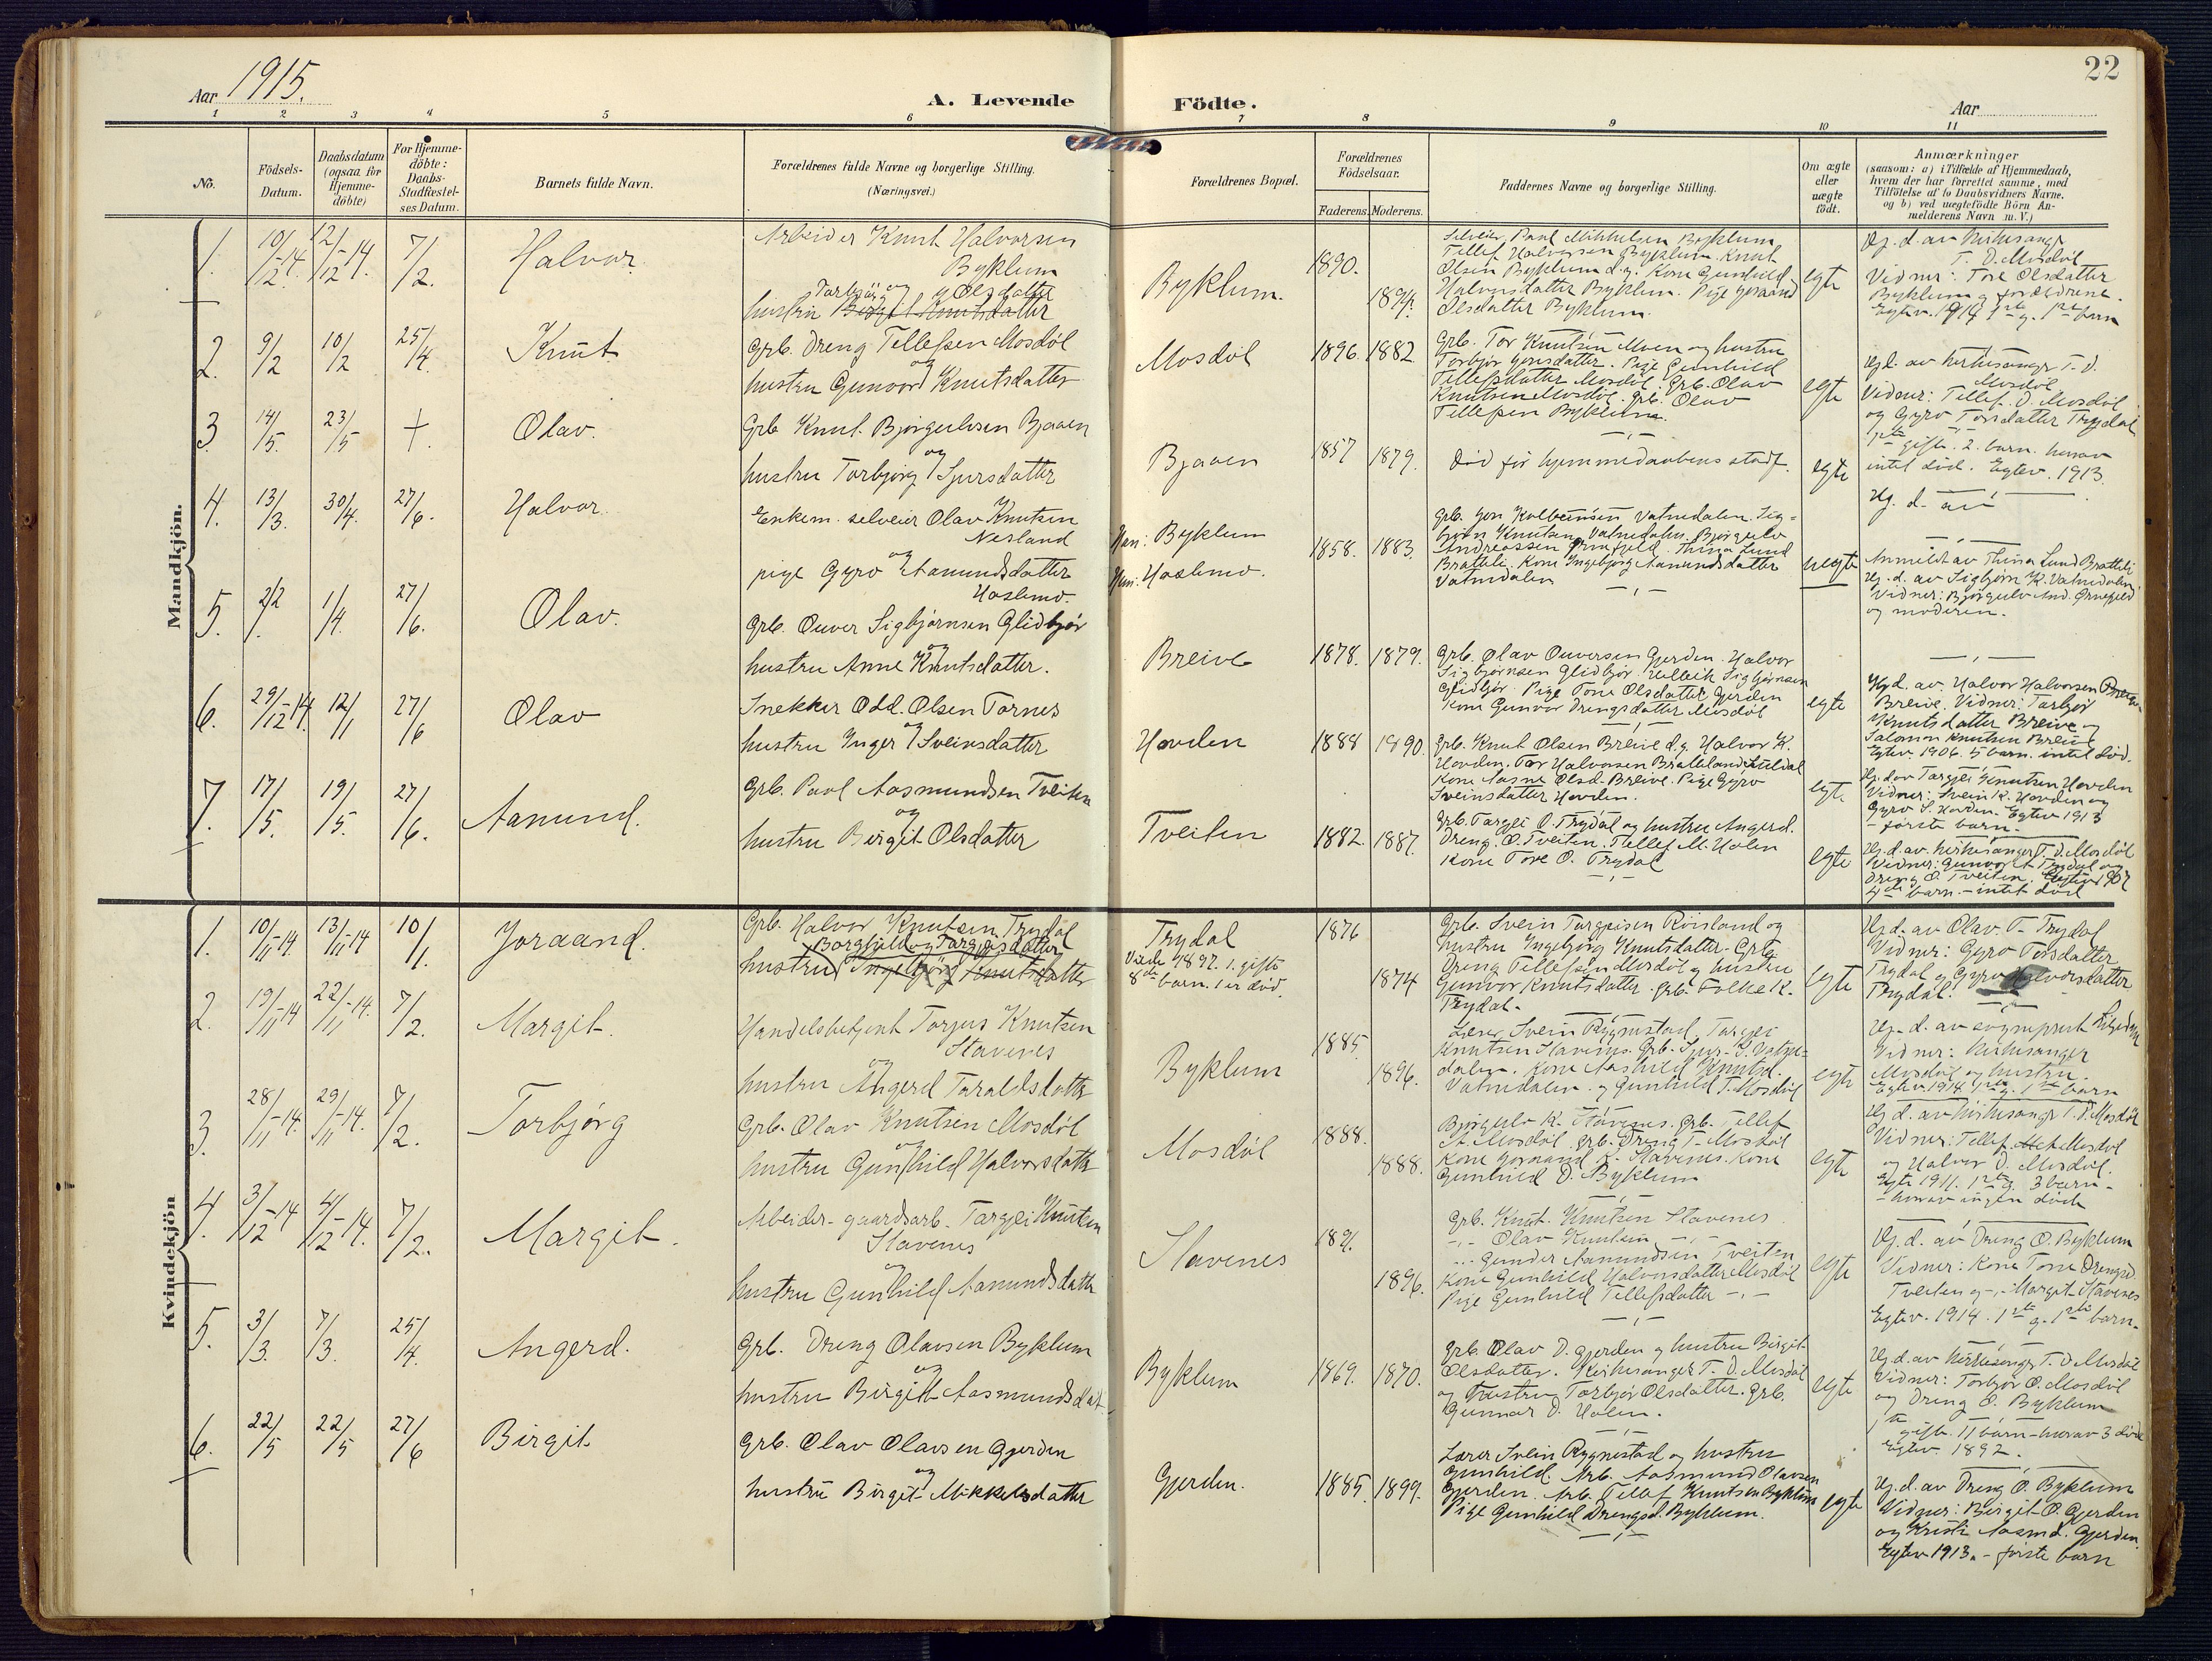 22
Aar 1915.
A. Levende
Födte.
Aar
1
2
3
4
5
6
7
8
9
10
11
No.
Födsels-
Datum.
Daabsdatum
(ogsaa for
Hjemme-
döbte)
For Hjemme-
döbte:
Daabs-
Stadfæstel-
ses Datum.
Barnets fulde Navn.
Forældrenes fulde Navne og borgerlige Stilling.
(Næringsvei.)
Forældrenes Bopæl.
Forældrenes
Födselsaar.
Faderens.
Moderens.
Faddernes Navne og borgerlige Stilling.
Om ægte
eller
uægte
födt.
Anmærkninger
(saasom: a) i Tilfælde af Hjemmedaab,
hvem der har forrettet samme, med
Tilföielse af to Daabsvidners Navne.
og b) ved uegtefödte Börn An-
melderens Navn m. V.)
Mandkjön.
1.
10/12-14.
12/12-14.
7/2.
Halvor.
Arbeider Knut Halvorsen
Byklum
Torbjör og Olsdatter
hustru Birgit Knutsdatter
Byklum.
1890.
1894.
Selveier Paul Mikkelsen Byklum
Tellef Halvorsen Byklum. Knut
Olsen Byklum d.y. Kone Gunhild
Halvorsdatter Byklum. Pige Joraand
Olsdatter Byklum.
egte
Hj. d. av kirkesanger
T. D. Mosdöl
Vidner: Tore Olsdatter
Byklum og forældrene.
Egtev. 1914 1ste g. 1ste barn
2.
9/2
10/2
25/4.
Knut
Grb. Dreng Tellefsen Mosdöl
og
hustru Gunvor Knutsdatter
Mosdöl
1896.
1882
Grb. Tor Knutsen Moen og hustru
Torbjör Jonsdatter. Pige Gunhild
Tellefsdatter Mosdöl. Grb. Olav
Knutsen Mosdöl. Grb. Olav
Tellefsen Byklum.
egte
Hj d. av kirkesanger T. D.
Mosdöl.
Vidner: Tellef D. Mosdöl
og Gyro Torsdatter Trydal
1ste gifte. 2. barn. herav
intet död. Egtev. 1913.
3
14/5.
23/5
+.
Olav.
Grb. Knut. Bjørgulvsen Bjaaen
og
hustru Torbjørg Sjursdatter
Bjaaen
1857
1879.
Død før hjemmedaabens stadf.
egte
Hj. d. av
4.
13/3.
30/4.
27/6.
Halvor.
Enkem. selveier Olav Knutsen
Nesland
og
pige Gyro Aanundsdatter
Hoslemo.
Han: Byklum
Hun: Hoslemo.
1858.
1883.
Grb. Jon Kolbeinsen Vatnedalen. Sig-
bjørn Knutsen Vatnedalen. Bjørgulv
Andreassen Ørnefjeld. Thina Lund
Bratteli. Kone Ingebjørg Aanundsdatter
Vatnedalen
uegte
Anmeldt av Thina Lund Bratteli
Hj. d. av Sigbjørn K. Vatnedalen.
Vidner: Bjørgulv And. Ørnefjeld
og moderen.
5.
2/2
1/4.
27/6.
Olav.
Grb. Ouver Sigbjørnsen Glidbjør
og
hustru Anne Knutsdatter.
Breive
1878.
1879.
Grb. Olav Ouversen Gjerden. Halvor
Sigbjørnsen Glidbjør. Villeik Sigbjørnsen
Glidbjør. Pige Tone Olsdatter Gjerden
Kone Gunvor Drengsdatter Mosdöl
egte
Hj. d. av Halvor Halvorsen
Breive. Vidner: Torbjør
Knutsdatter Breive og
Salomon Knutsen Breive
Egtev. 1906. 5 barn. intet död.
6.
29/12-14.
12/1
27/6
Olav
Snekker Odd. Olsen Tornes
og
hustru Inger Sveinsdatter
Hovden
1888
1890.
Grb. Knut Olsen Breive d.y. Halvor K.
Hovden. Tor Halvorsen Bratteland Suldal
Kone Aasne Olsd. Breive. Pige Gyro
Sveinsdatter Hovden.
egte
Hj. d. av Targjei Knutsen Hovden
Vidner: Svein K. Hovden og
Gyro S. Hovden. Egtev 1913
- første barn.
7.
17/5.
19/5.
27/6.
Aanund.
Grb. Pavl Aasmundsen Tveiten
og
hustru Birgit Olsdatter
Tveiten
1882.
1887.
Grb. Targjei O. Trydal og hustru Angerd.
Dreng. O. Tveiten. Tellef M. Holen
Kone Tore O. Trydal
egte
Hj. d. av kirkesanger T. D. Mosdöl
Vidner: Gunvor T. Trydal og
Dreng O. Tveiten. Egtev 1907
4de barn. - intet död
Kvindekjön
1.
10/11-14
13/11-14
10/1.
Joraand.
Grb. Halvor Knutsen Trydal
Borghild og Targjeisdatter
hustru Ingebjørg Knutsdatter
Trydal
Viede 1897. 1. gifte
8de barn. 1 er död.
1876
1874
Grb. Svein Targjeisen Röisland og
hustru Ingebjørg Knutsdatter. Grb.
Dreng Tellefsen Mosdöl og hustru
Gunvor Knutsdatter. Grb. Folke K.
Trydal.
egte
Hj. d. av Olav T. Trydal
Vidner: Gyro Torsdatter
Trydal og Gyro Halvorsdatter
Trydal.
2.
19/11-14
22/11-14.
7/2.
Margit.
Handelsbetjent Torjus Knutsen
Stavenes
og
hustru Angerd Taraldsdatter
Byklum
1885.
1896.
Lærer Svein Rygnestad. Targjei
Knutsen Stavenes. Grb. Sjur K. Vatne-
dalen. Kone Aashild Knutsd.
Vatnedalen. og Gunhild T. Mosdöl
egte
Hj. d. av sogneprest
Vidner: Kirkesanger
Mosdöl og hustru.
Egtev 1914 1ste g. 1ste barn
3.
28/11-14.
29/11-14.
7/2.
Torbjørg
Grb. Olav Knutsen Mosdöl
og
hustru Gunhild Halvorsdatter
Mosdöl
1888.
1888.
Bjørgulv K. Stavenes. Grb. Tellef
Mosdöl. Grb. Dreng T. Mosdöl
Kone Joraand K. Stavenes. Kone
Gunhild D. Byklum
egte
Hj. d. av kirkesanger T. D. Mosdöl
Vidner: Tellef Mosdöl
og Halvor D. Mosdöl.
Egte 1911. 1ste g. 3 barn -
- herav ingen döde
4.
3/12-14
4/12-14.
7/2.
Margit.
Arbeider- gaardsarb. Targjei Knutsen
Stavenes
og
hustru Gunhild Aanundsdatter
Stavenes
1891.
1896.
Grb. Knut. Knutsen Stavenes
-"- Olav Knutsen -"-
-"- Gunder Aanundsen Tveiten
Kone Gunhild Halvorsdatter Mosdöl
Pige Gunhild Tellefsdatter -"-
egte
Hj. d. av Dreng O. Byklum
Vidner: Kone Tone Drengsd.
Tveiten og -"- Margit Stavenes
Egtev. 1914. 1ste g. 1ste barn.
5.
3/3.
7/3.
25/4.
Angerd.
Grb. Dreng Olavsen Byklum
og
hustru Birgit Aasmundsdat.
Byklum
1869.
1870.
Grb. Olav D. Gjerden og hustru Birgit
Olsdatter. Kirkesanger T. D. Mosdöl
og hustru Torbjör Olsdatter. Grb.
Gunnar D. Holen.
egte
Hj. d. av kirkesanger T. D. Mosdöl
Vidner: Torbjör O. Mosdöl
og Dreng O. Byklum
1ste gifte. 11 barn - herav 3 döde
Egtev. 1892.
6.
22/5
22/5
27/6
Birgit
Grb. Olav Olavsen Gjerden
og
hustru Birgit Mikkelsdatter
Gjerden.
1885.
1899.
Lærer Svein Rygnestad og hustru
Gunhild. Arb. Aasmund Olavsen
Gjerden. Arb. Tellef Knutsen Byklum
Pige Gunhild Drengsd. Byklum.
egte
Hj. d. av Dreng O. Byklum
Vidner: Birgit O. Gjerden
og Kristi Aasmd. Gjerden.
Egtev 1913. - förste barn